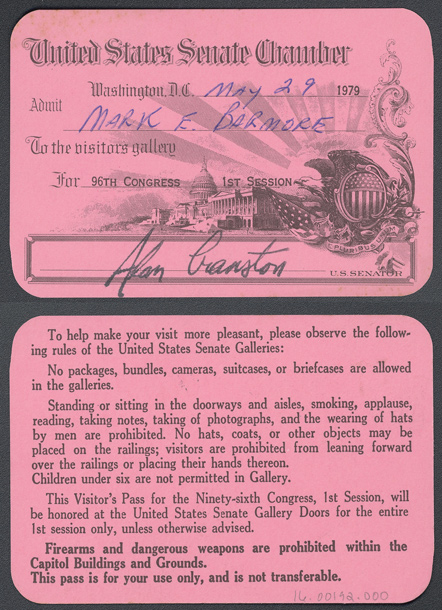 United States Senate Chamber
Washington, D.C. May 29 1979
Admit
Mark E. Barmore
To the visitors gallery
For 96th Congress 1st Session
PLURIBUS
Alan Cranston
U.S. SENATOR
To help make your visit more pleasant, please observe the follow-
ing rules of the United States Senate Galleries:
No packages, bundles, cameras, suitcases, or briefcases are allowed
in the galleries.
Standing or sitting in the doorways and aisles, smoking, applause,
reading, taking notes, taking of photographs, and the wearing of hats
by men are prohibited. No hats, coats, or other objects may be
placed on the railings; visitors are prohibited from leaning forward
over the railings or placing their hands thereon.
Children under six are not permitted in Gallery.
This Visitor's Pass for the Ninety-sixth Congress, 1st Session, will
be honored at the United States Senate Gallery Doors for the entire
1st session only, unless otherwise advised.
Firearms and dangerous weapons are prohibited within the
Capitol Buildings and Grounds.
This pass is for your use only, and is not transferable.
16.00192.000